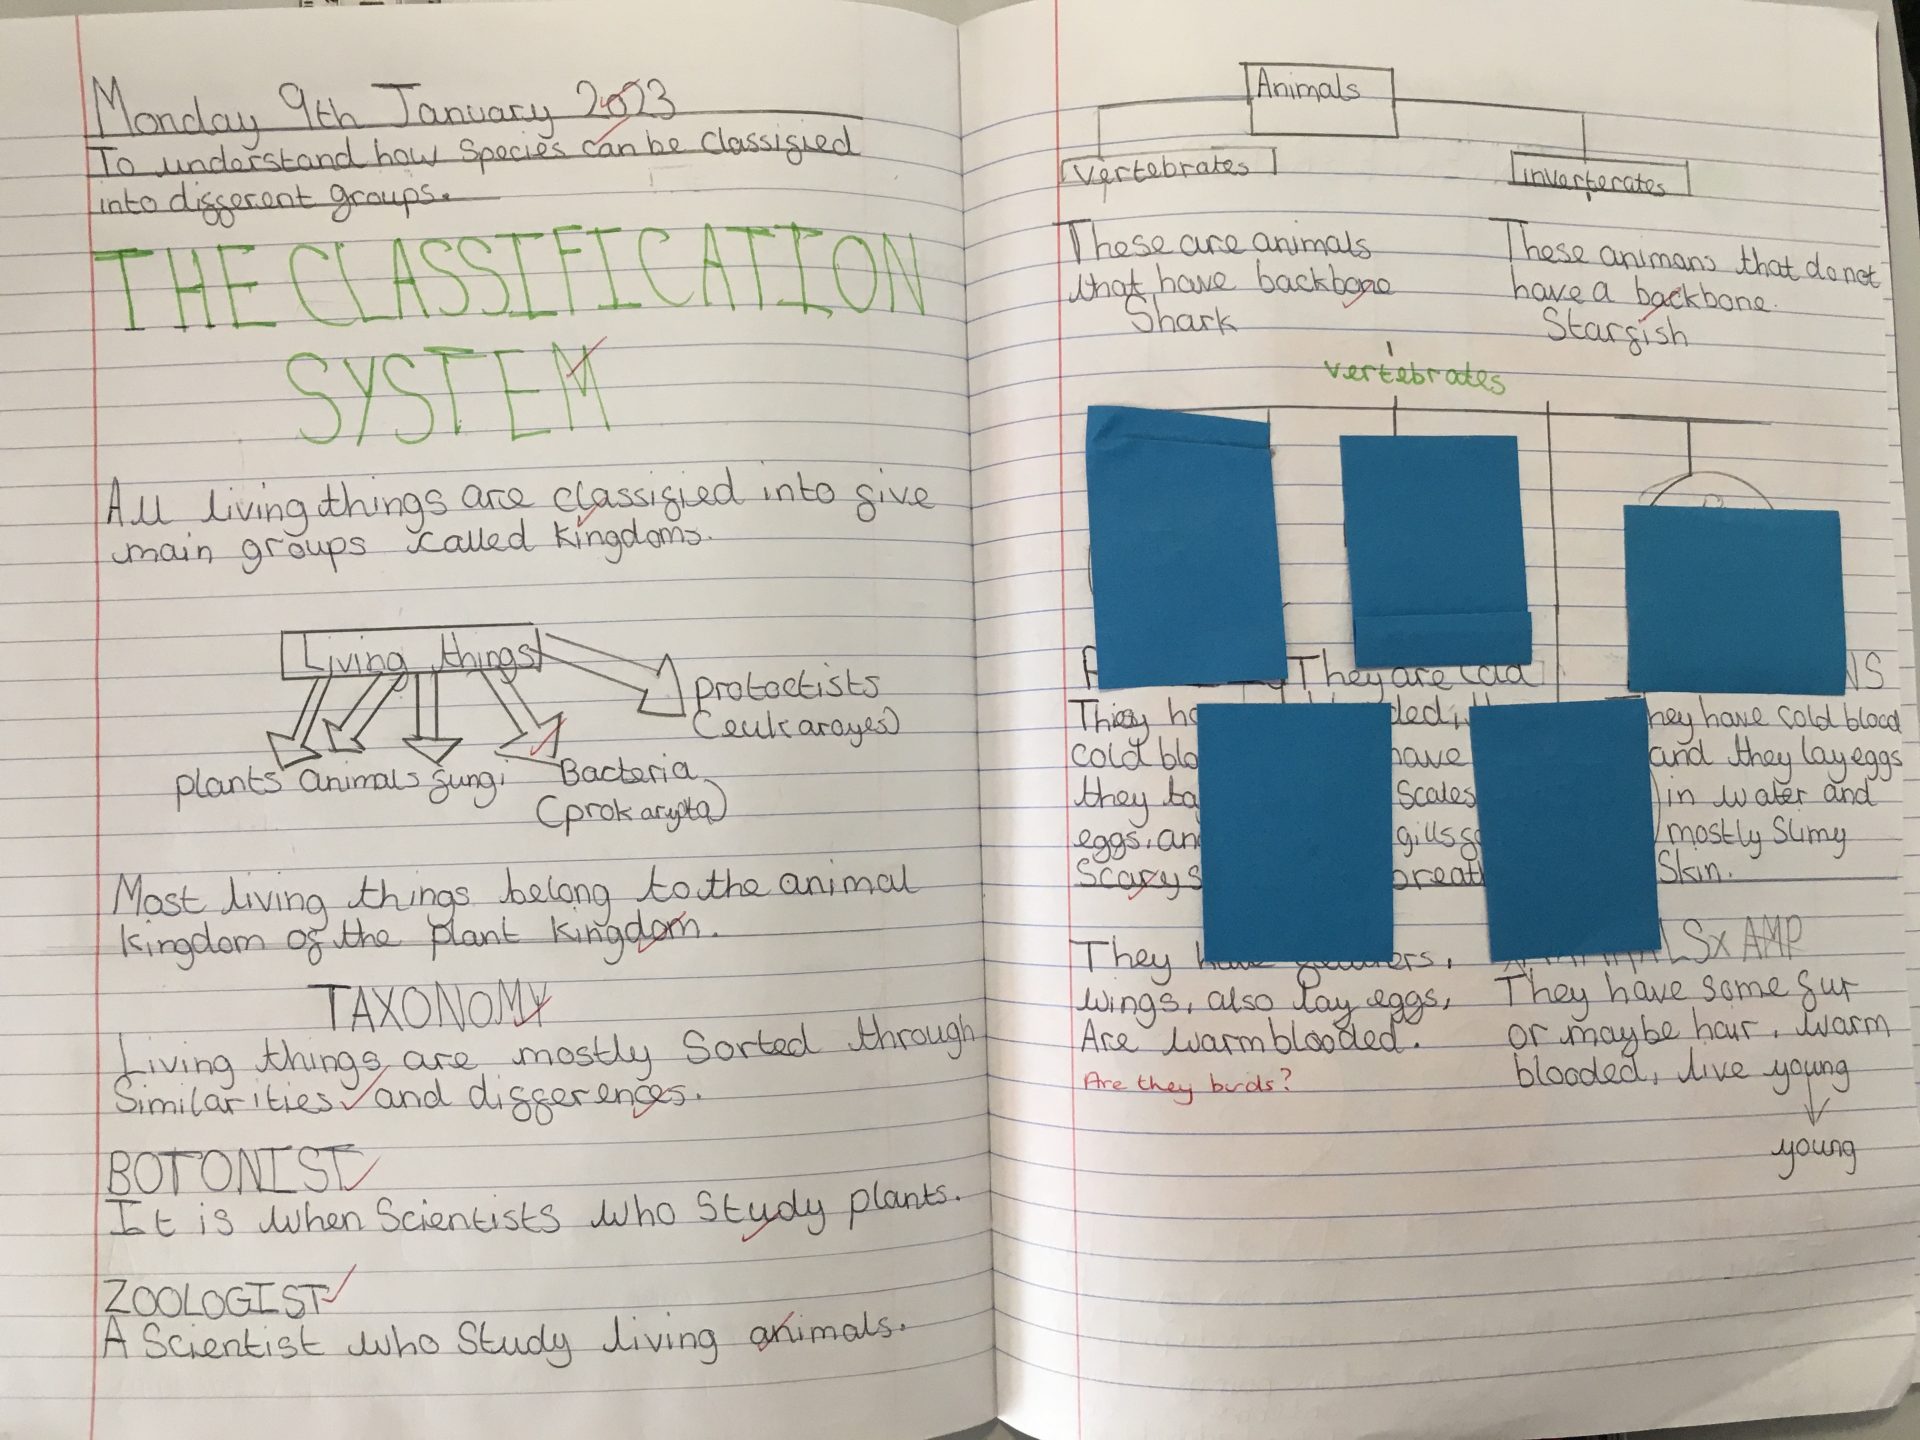 Monday 9th January 2023
To understand how species can be classified
into different groups.
THE CLASSIFICATION
SYSTEM
All living things are classified into five
main groups called kingdoms.
Living things
plants animals fungi Bacteria
(prokarypta)
protoctists
(eukarayes)
Most living things belong to the animal
kingdom of the plant kingdom.
TAXONOMY
Living things are mostly sorted through
similarities and differences.
BOTONIST
It is when scientists who study plants.
ZOOLOGIST
A scientist who study living animals.
Animals
vertebrates
inverterates
These are animals
that have backbone
Shark
These animans that do not
have a backbone.
Starfish
vertebrates
They are
cold
they
eggs, an
Scary s
have
scales
gills
They have cold blood
and they lay eggs
in water and
mostly slimy
skin.
They have feathers,
wings, also lay eggs,
Are warmblooded.
Are they birds?
AMP
They have some fur
or maybe hair, warm
blooded, live young
young